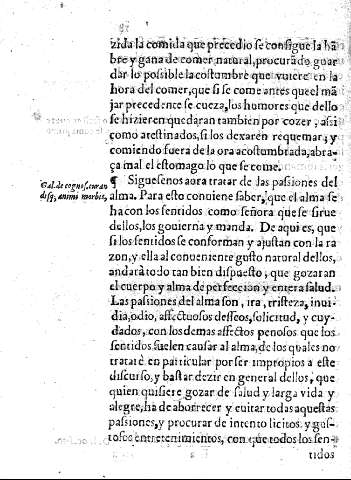 zida la comida que precedio se consigue la hã
bre y gana de comer natural, procurãdo guar
dar lo possible la costumbre que vuiere en la
hora del comer, que si se come antes quel mã
jar precedence se cueza, los humores que dello
se hizieren quedaran tambien por cozer, assi
como atestinados, si los dexaren requemar, y
comiendo fuera de la ora acostumbrada, abra-
ça mal el estomago lo que se come.
¶ Siguesenos aora tratar de las passiones del
Gal. de cognos. curan
alma. Para esto conuiene saber, que el alma se
disq; animi morbis,
ha con los sentidos como señora que se sirue
dellos, los gouierna y manda. De aqui es, que
si los sentidos se conforman y ajustan con la ra
zon, y ella al conueniente gusto natural dellos,
andarà todo tan bien dispuesto, que gozaran
el cuerpo y alma de perfeccion y entera salud.
Las passiones del alma son, ira, tristeza, inui-
dia, odio, affectuosos desseos, solicitud, y cuy-
dados, con los demas affectos penosos que los
sentidos suelen causar al alma, de los quales no
tratarè en particular por ser impropios a este
discurso, y bastar dezir en general dellos, que
quien quisiere gozar de salud y larga vida y
alegre, ha de aborrecer y euitar todas aquestas
passiones, y procurar de intento licitos y gus-
tosos entretenimientos, con que todos los sen-
tidos